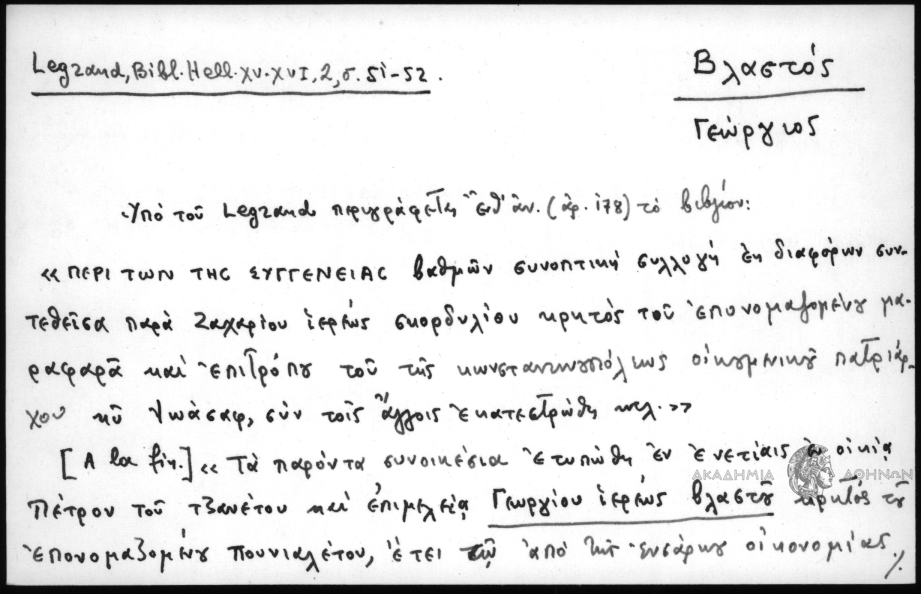 Legrand, Bibl. Hell. XV-XVI, 2, σ. 51-52.
Βλαστός
Γεώργιος
Ὑπὸ τοῦ Legrand περιγράφεται ὑπ' ἀρ. (ἀρ. 178) τὸ βιβλίον:
«ΠΕΡΙ ΤΩΝ ΤΗC ΣΥΓΓΕΝΕΙΑC βαθμῶν συνοπτικὴ συλλογὴ ἐκ διαφόρων συν-
τεθεῖσα παρὰ Ζαχαρίου ἱερέως σκορδυλίου κρητὸς τοῦ ἐπονομαζομένου μα-
ραφαρᾶ καὶ ἐπιτρόπου τοῦ τῆς κωνσταντινουπόλεως οἰκουμενικοῦ πατριάρ-
χου κῦ Ἰωάσαφ, σὺν τοῖς ἄλλοις ἐκατεστρώθη κελ.»
[A la fin.] «Τὰ παρόντα συνοικέσια ἐτυπώθη ἐν ἐνετίαις ἐν οἰκίᾳ
Πέτρου τοῦ τζανέτου καὶ ἐπιμελείᾳ Γεωργίου ἱερέως βλαστοῦ κρητὸς τοῦ
ἐπονομαζομένου πουνιαλέτου, ἔτει τῷ ἀπὸ τῆς ἐνσάρκου οἰκονομίας ./.
ΑΚΑΔΗΜΙΑ ΑΘΗΝΩΝ